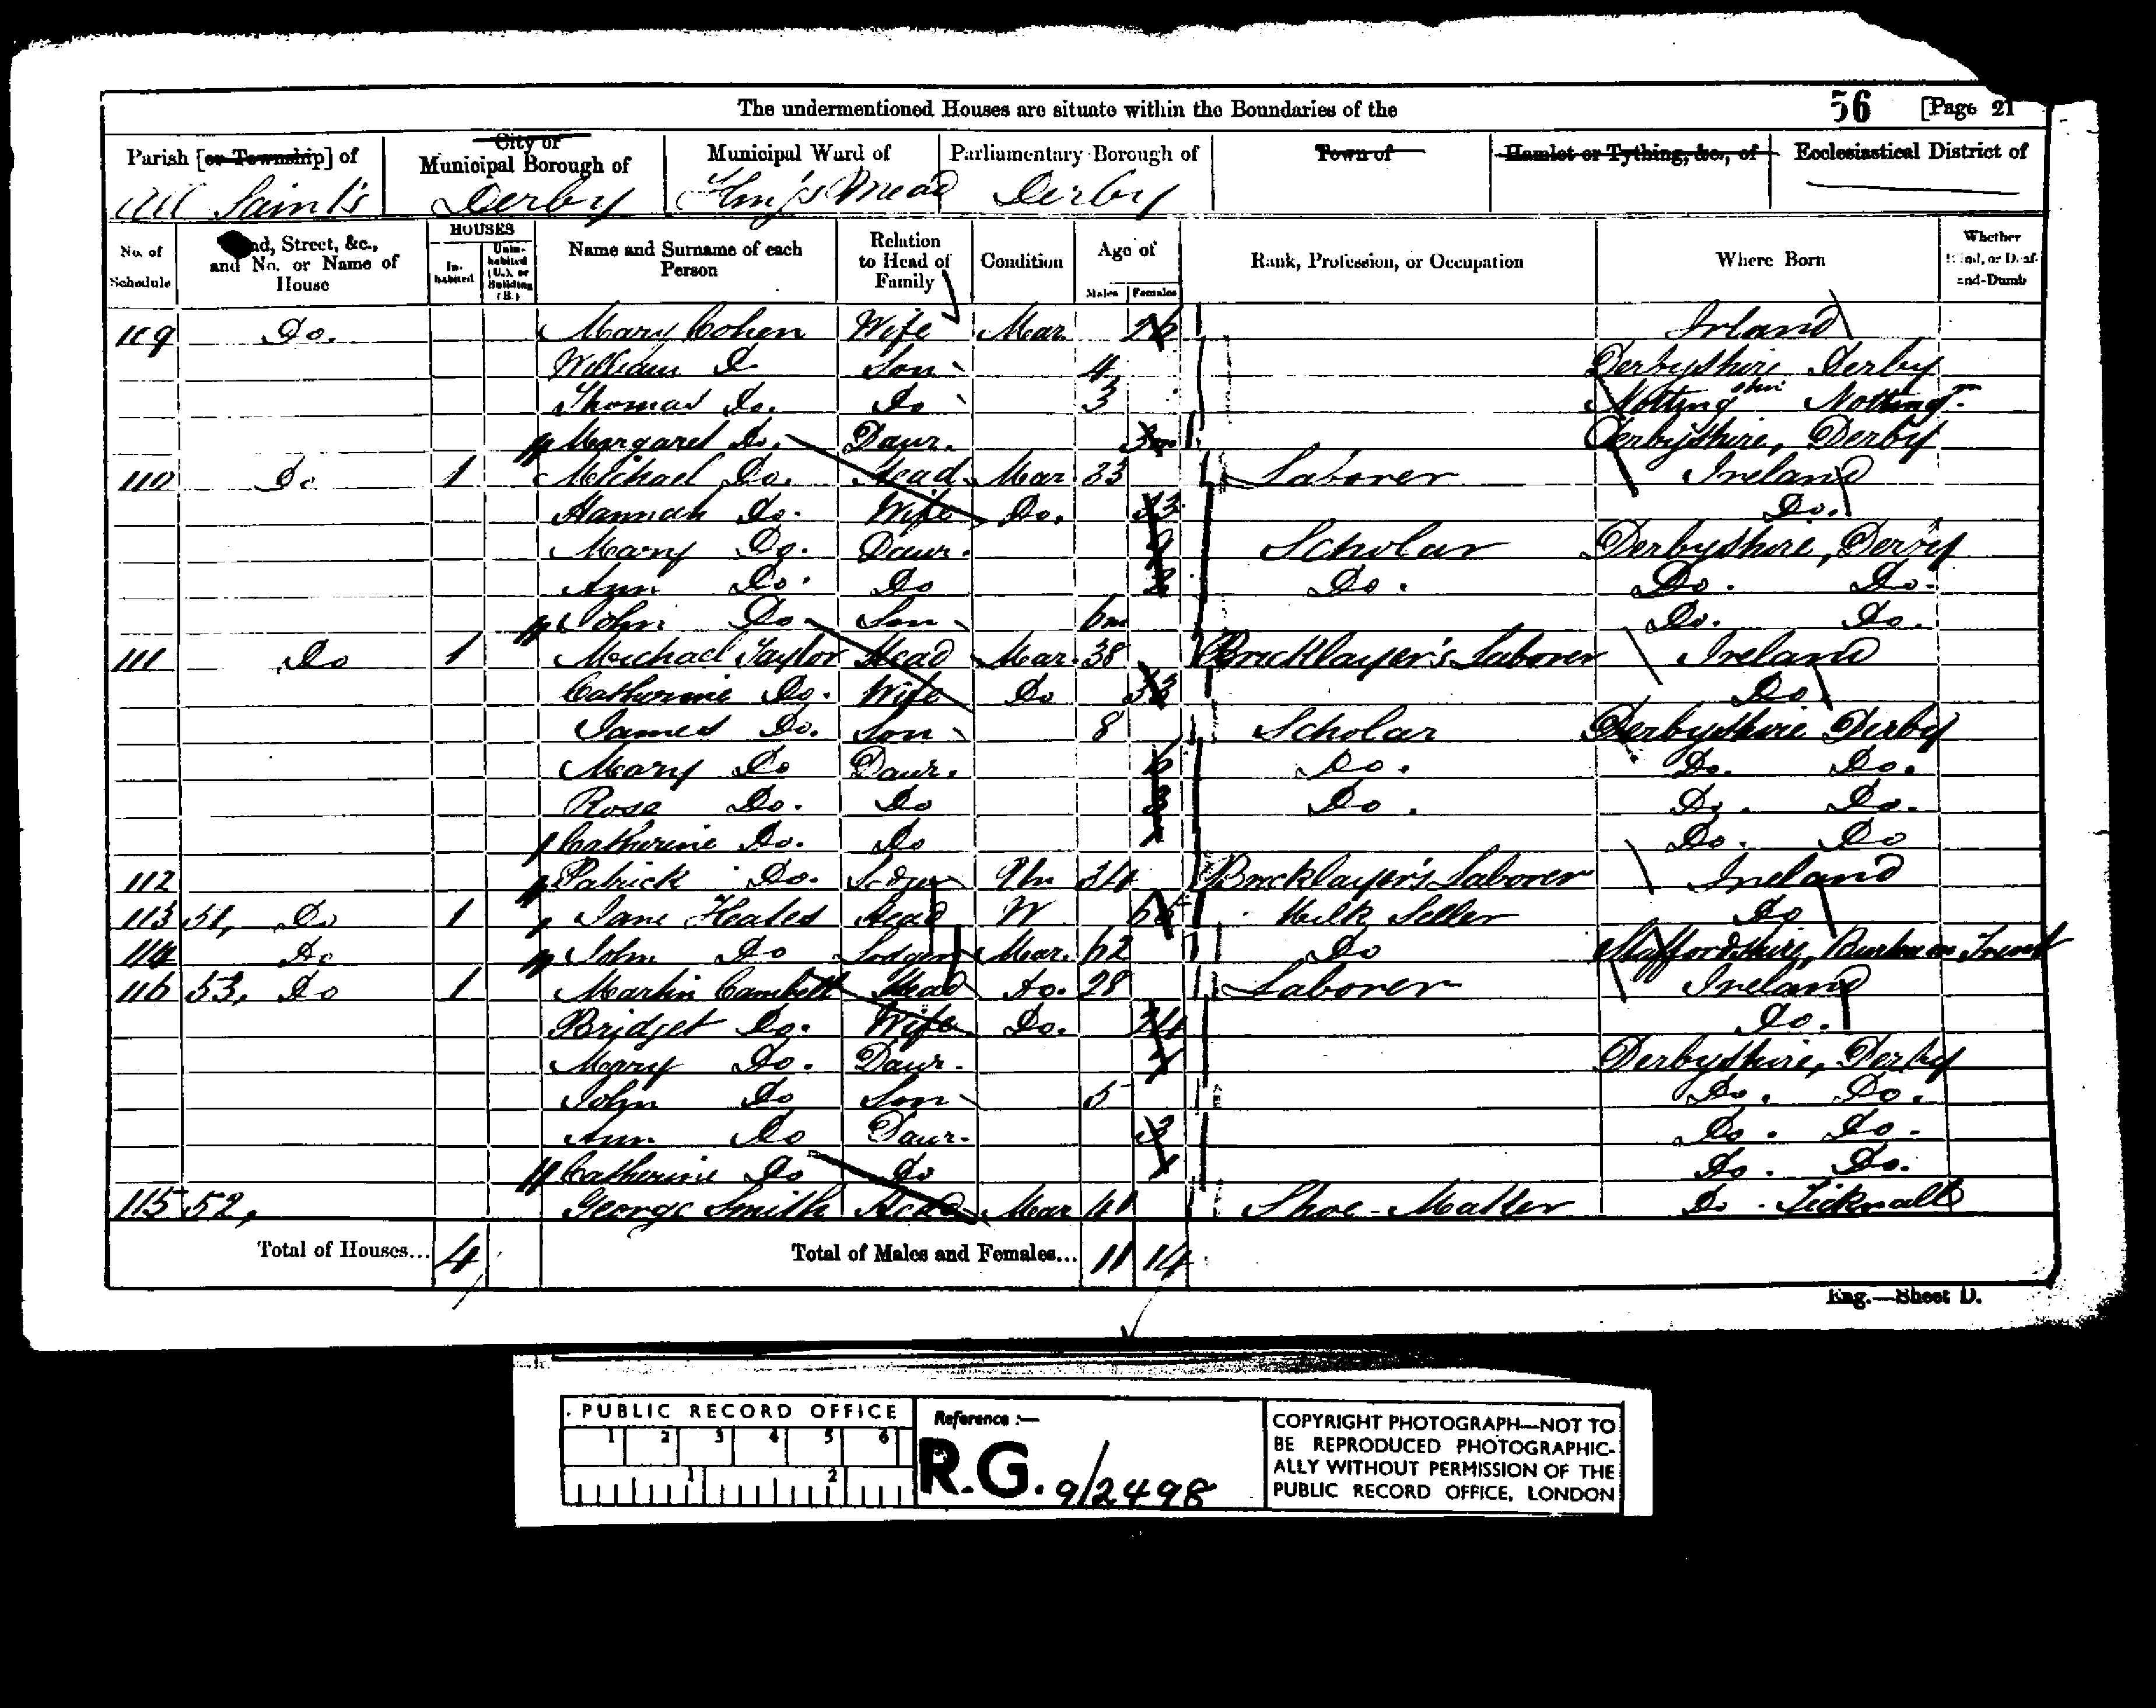 The undermentioned Houses are situate within the Boundaries of the 56 [Page 21
Parish [or Township] of City or Municipal Borough of Municipal Ward of Parliamentary Borough of Town of Hamlet or Tything, &c., of Ecclesiastical District of
All Saint's Derby Derby
No. of Schedule Street, &c., and No. or Name of House HOUSES Inhabited Uninhabited (U.), or Building (B.) Name and Surname of each Person Relation to Head of Family Condition Age of Males Females Rank, Profession, or Occupation Where Born Whether Blind, or Deaf-and-Dumb
109 Do. Mary Cohen Wife Mar. 26 Irland
William D Son 4 Derbyshire Derby
Thomas Do. Do 3 Nottingshire Notting
Margaret Do. Daur. 3m Derbyshire, Derby
110 Do 1 Michael Do. Head Mar. 33 Laborer Ireland
Hannah Do. Wife Do. 33 Do.
Mary Do. Daur. 9 Scholar Derbyshire, Derby
Ann Do. Do Do. Do. Do.
John Do Son 6m Do. Do.
111 Do 1 Michael Taylor Head Mar. 38 Bricklayer's Laborer Ireland
Catherine Do. Wife Do 33 Do.
James Do. Son 8 Scholar Derbyshire Derby
Mary Do Daur. 6 Do. Do. Do.
Rose Do. Do 3 Do. Do. Do.
Catherine Do. Do 1 Do. Do
112 Patrick Do. Lodger Un 34 Bricklayer's Laborer Ireland
113 51, Do 1 Jane Heates Head W 65 Milk Seller Do
114 Do John Do Lodger Mar. 62 Do Staffordshire, Burton on Trent
116 53, Do 1 Martin Cambell Head Do. 28 Laborer Ireland
Bridget Do. Wife Do. 24 Do.
Mary Do. Daur. Derbyshire, Derby
John Do Son 5 Do. Do.
Ann Do Daur. 3 Do. Do.
Catherine Do Do 1 Do. Do.
115 52, George Smith Head Mar 41 Shoe-Maker Do. Ticknall
Total of Houses... 4 Total of Males and Females... 11 14
Eng.—Sheet D.
PUBLIC RECORD OFFICE
1 2 3 4 5 6
1 2
Reference :—
R.G. 9/2498
COPYRIGHT PHOTOGRAPH—NOT TO
BE REPRODUCED PHOTOGRAPHIC-
ALLY WITHOUT PERMISSION OF THE
PUBLIC RECORD OFFICE, LONDON